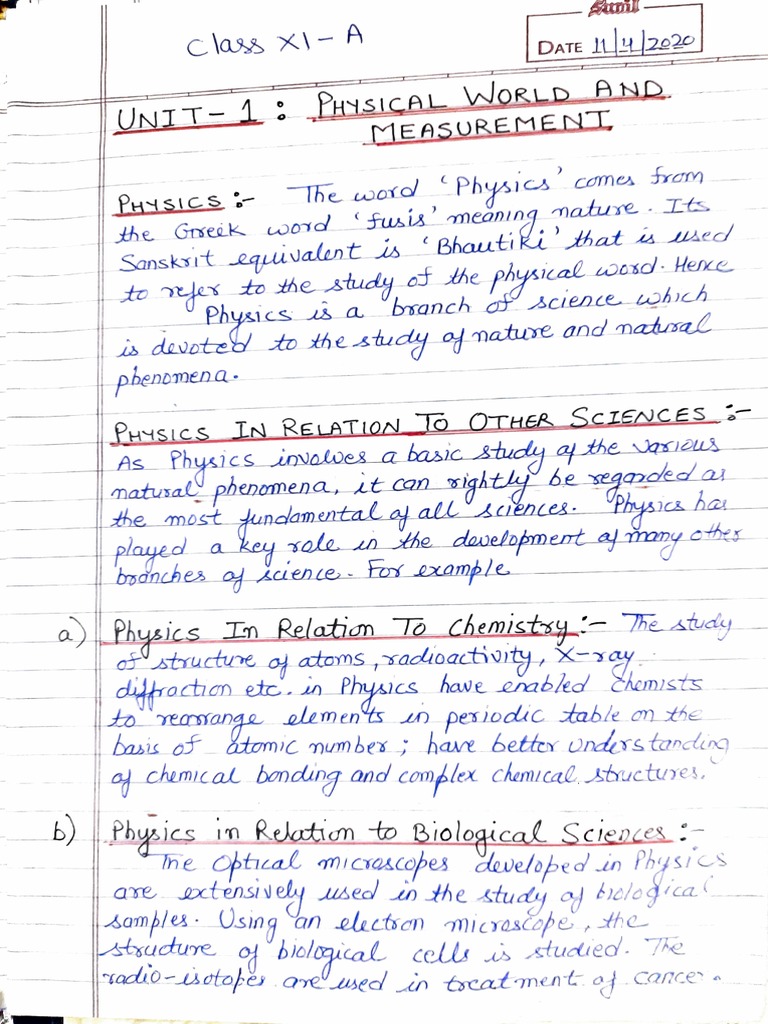 Sunil
Class XI-A
DATE 11/4/2020
UNIT-1 : PHYSICAL WORLD AND
MEASUREMENT
PHYSICS :- The word 'Physics' comes from
the Greek word 'fusis' meaning nature. Its
Sanskrit equivalent is 'Bhautiki' that is used
to refer to the study of the physical word. Hence
Physics is a branch of science which
is devoted to the study of nature and natural
phenomena.
PHYSICS IN RELATION TO OTHER SCIENCES :-
As Physics involves a basic study of the various
natural phenomena, it can rightly be regarded as
the most fundamental of all sciences. Physics has
played a key role in the development of many other
branches of science. For example
a) Physics In Relation To Chemistry :- The study
of structure of atoms, radioactivity, X-ray
diffraction etc. in Physics have enabled chemists
to rearrange elements in periodic table on the
basis of atomic number; have better understanding
of chemical bonding and complex chemical structures.
b) Physics in Relation to Biological Sciences :-
The Optical microscopes developed in Physics
are extensively used in the study of biological
samples. Using an electron microscope, the
structure of biological cells is studied. The
radio-isotopes are used in treatment of cancer.